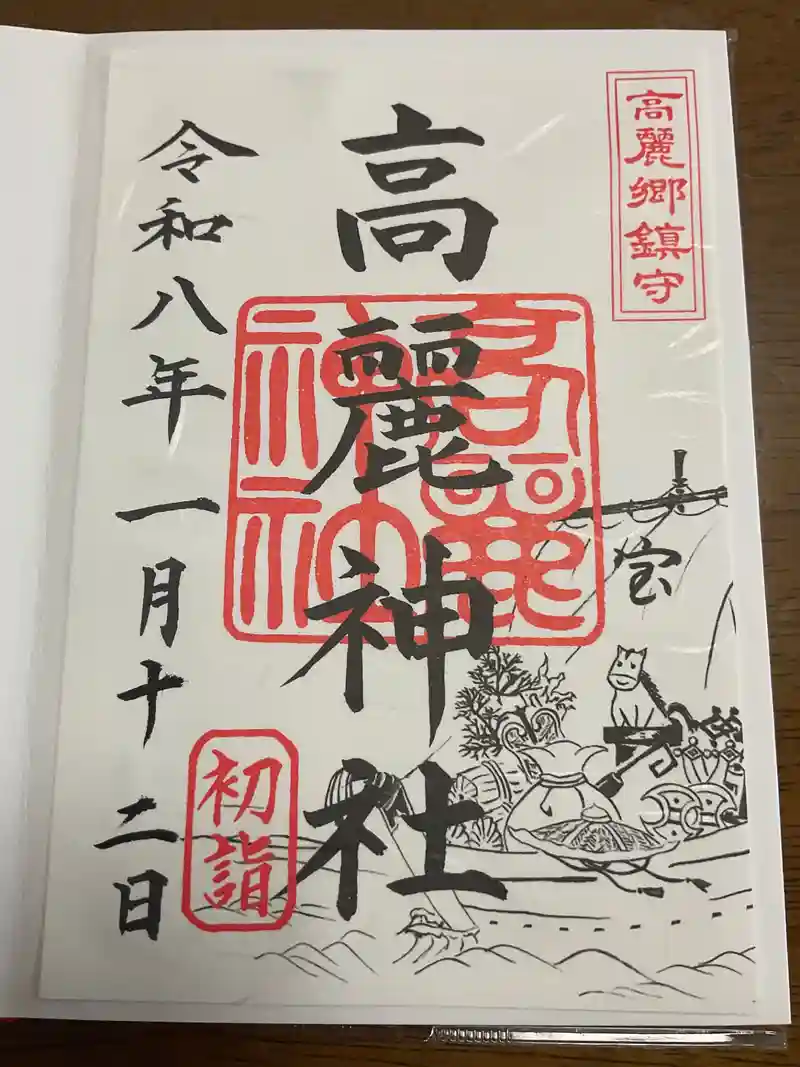 高麗郷鎮守
高麗神社
高麗神社
宝
令和八年一月十二日
初詣